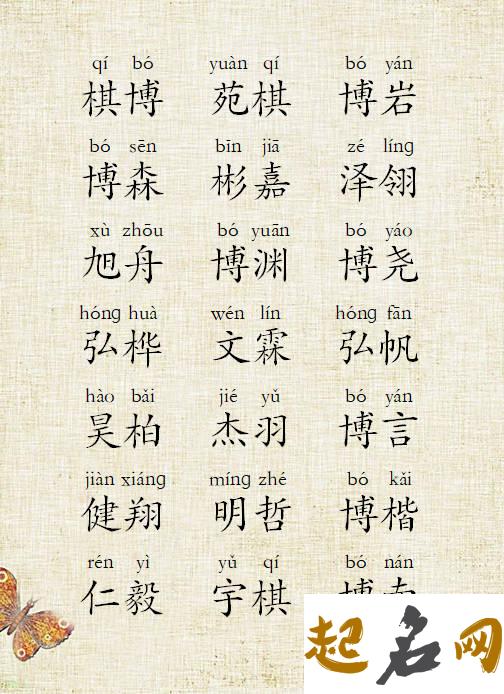 qí bó yuàn qí bó yán
棋博 苑棋 博岩
bó sēn bīn jiā zé líng
博森 彬嘉 泽翎
xù zhōu bó yuān bó yáo
旭舟 博渊 博尧
hóng huà wén lín hóng fān
弘桦 文霖 弘帆
hào bǎi jié yǔ bó yán
昊柏 杰羽 博言
jiàn xiáng míng zhé bó kǎi
健翔 明哲 博楷
rén yì yǔ qí bó nán
仁毅 宇棋
起名网